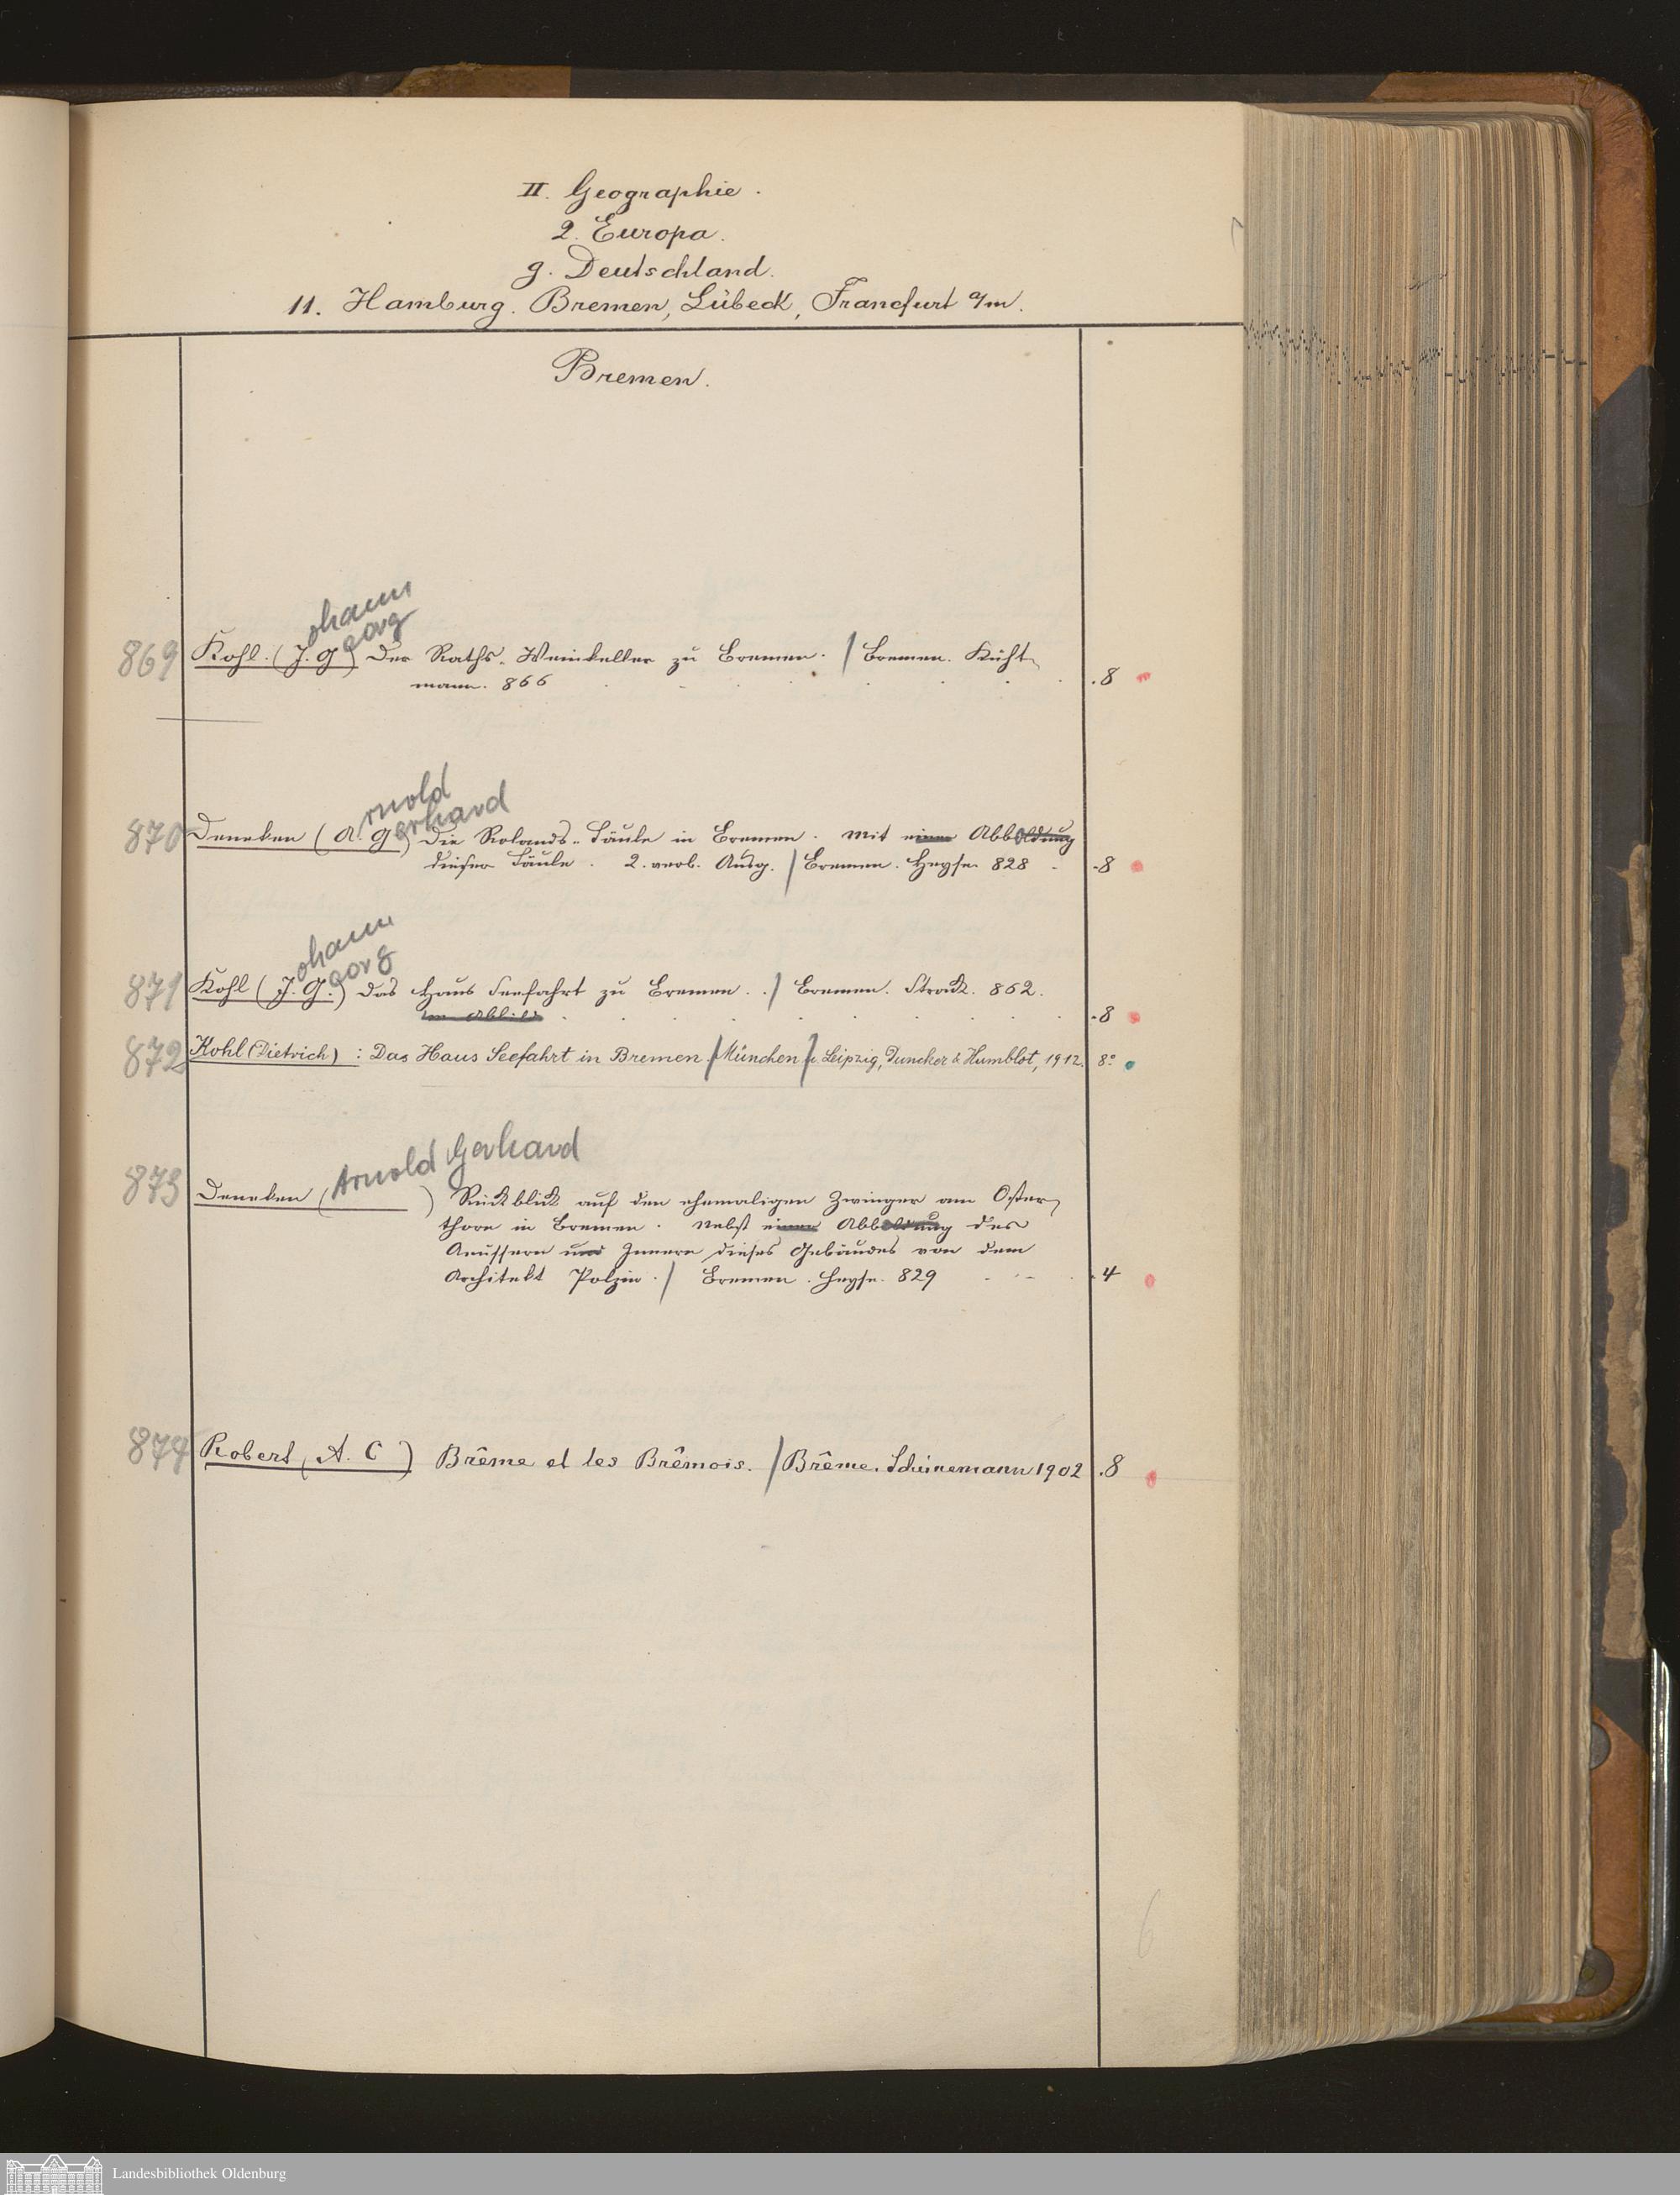 II. Geographie.
2. Europa.
g. Deutschland.
11. Hamburg. Bremen, Lübeck, Francfurt a/m.
Bremen.
ohann
eorg
869 Kohl. (J. G) Der Raths-Weinkeller zu Bremen. / Bremen. Küht-
mann. 866 .8
rnold
870 Deneken (A. Gerhard) Die Rolands-Säule in Bremen. Mit einer Abbildung
dieser Säule. 2. verb. Ausg. / Bremen. Heyse. 828 - .8
ohann
eorg
871 Kohl (J. G.) Das Haus Seefahrt zu Bremen. / Bremen. Strack. 862.
.8
872 Kohl (Dietrich) : Das Haus Seefahrt in Bremen / München / u. Leipzig, Duncker & Humblot, 1912. 8°
Arnold Gerhard
873 Deneken ( ) Rückblick auf den ehemaligen Zwinger am Oster-
thore in Bremen. Nebst einer Abbildung des
Aeussern und Innern dieses Gebäudes von dem
Architekt Polzin. / Bremen. Heyse. 829 .4
874 Robert (A. C) Brême et les Brêmois. / Brême. Schünemann 1902 .8
6
Landesbibliothek Oldenburg